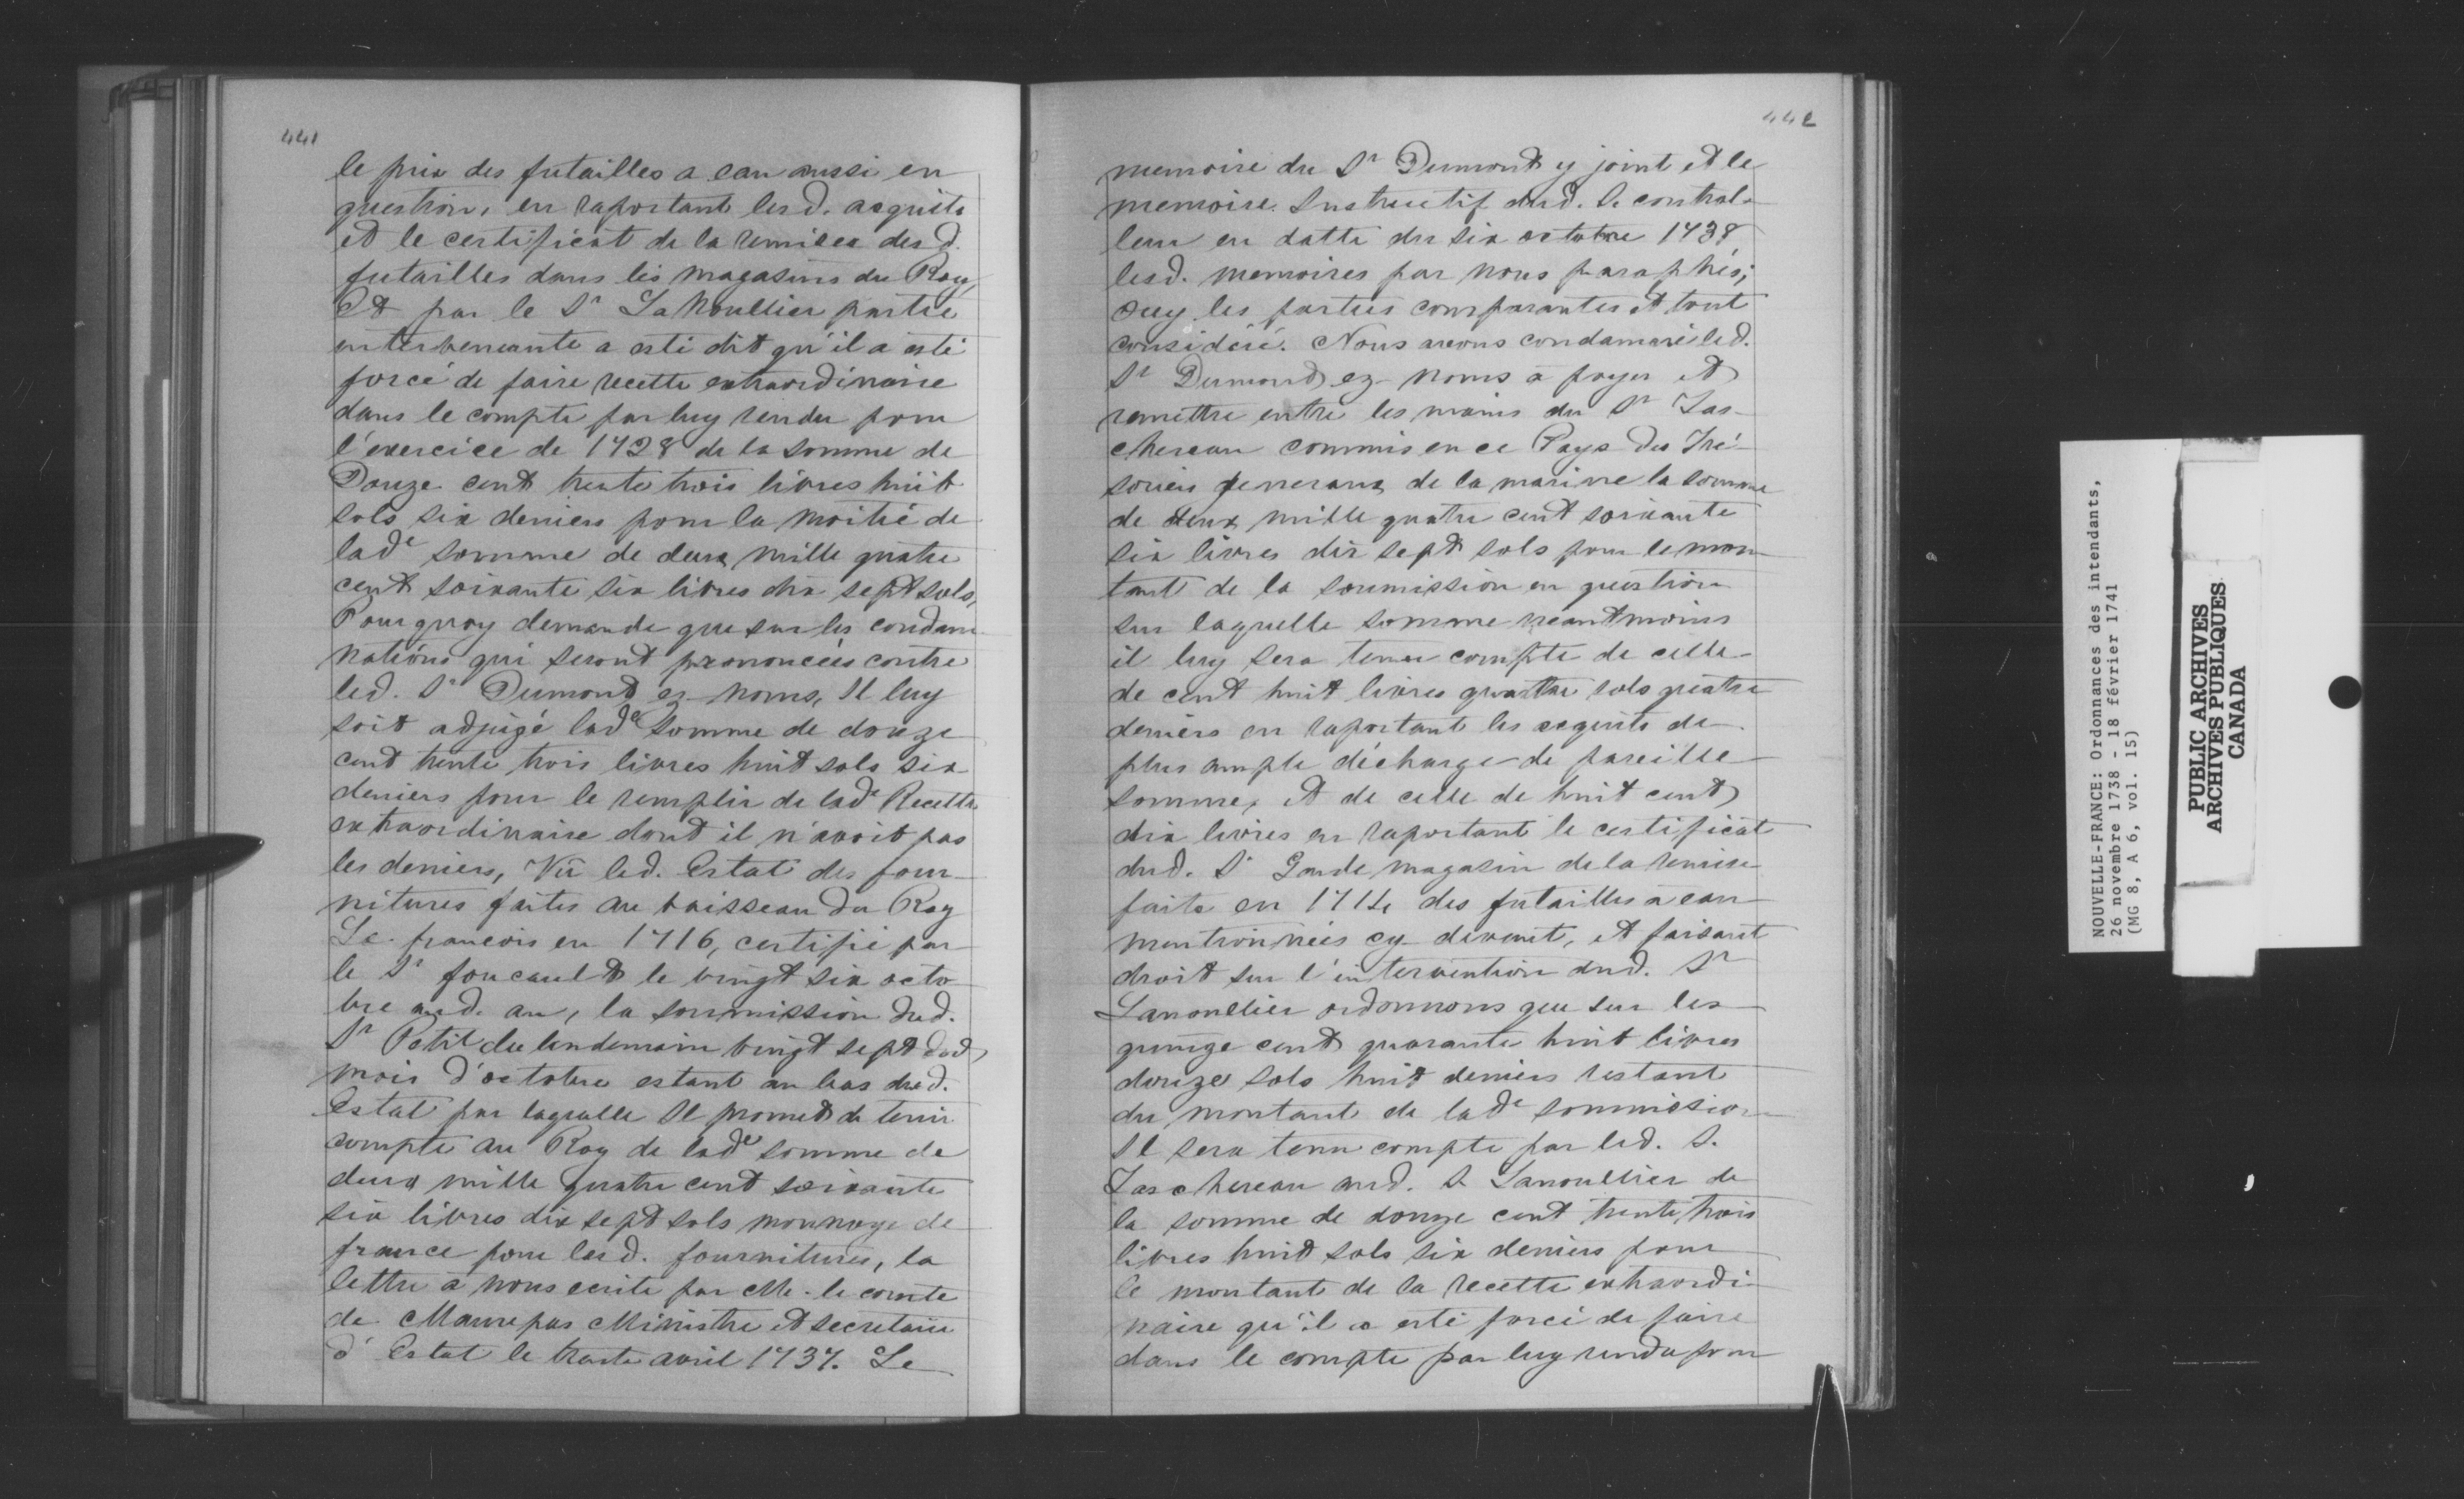 441
le prix des futailles a eau aussi en
question, en raportant lesd. acquits
et le certificat de la remise des d.
futailles dans les magasins du Roy,
Et par le Sr La Noullier partie
intervenante a esté dit qu'il a esté
forcé de faire recette extraordinaire
dans le compte par luy rendu pour
l'exercice de 1728 de la somme de
Douze cent trente trois livres huit
sols six deniers pour la moitié de
lade somme de deux mille quatre
cent soixante six livres dix sept sols,
Pourquoy demande que sur les condam
nations qui seront prononcées contre
led. Sr Dumond ez noms, Il luy
soit adjugé lade somme de douze
cent trente trois livres huit sols six
deniers pour le remplir de lade Recette
extraordinaire dont il n'avoit pas
les deniers, Vû led. Estat des four-
nitures faites au vaisseau du Roy
Le francois en 1716, certifié par
le Sr foucault le vingt six octo
bre aud. an, la soumission dud.
Sr Petit du lendemain vingt sept dud
mois d'octobre estant au bas dud.
Estat par laquelle Il promet de tenir
compte au Roy de lade somme de
deux mille quatre cent soixante
six livres dix sept sols monnoye de
france pour lesd. fournitures, la
lettre à nous ecrite par Mr. le comte
de Maurepas Ministre et secretaire
d'Estat le trente avril 1737. Le
442
memoire du Sr Dumont y joint et le
memoire Instructif dud. S. control-
leur en datte du six octobre 1738
lesd. memoires par nous paraphés;
Ouy les parties comparantes et tout
considéré. Nous avons condamné led.
Sr Dumond ez noms à payer et
remettre entre les mains du Sr Tas-
chereau commis en ce Pays des Tré-
soriers generaux de la marine la somme
de deux mille quatre cent soixante
six livres dix sept sols pour le mon
tant de la soumission en question
sur laquelle somme neantmoins
il luy sera tenu compte de celle
de cent huit livres quattre sols quatre
deniers en raportant les acquits de
plus ample décharge de pareille
somme, et de celle de huit cent
dix livres en raportant le certificat
dud. Sr Garde magasin de la remise
faite en 1714 des futailles a eau
mentionnées cy devant, et faisant
droit sur l'intervention dud. Sr
Lanoullier ordonnons que sur les
quinze cent quarante huit livres
douze sols huit deniers restant
du montant de lade soumission
Il sera tenu compte par led. S.
Taschereau aud. S. Lanoullier de
la somme de douze cent trente trois
livres huit sols six deniers pour
le montant de la recette extraordi-
naire qu'il a esté forcé de faire
dans le compte par luy rendu pour
NOUVELLE-FRANCE: Ordonnances des intendants,
26 novembre 1738 - 18 février 1741
(MG 8, A 6, vol. 15)
PUBLIC ARCHIVES
ARCHIVES PUBLIQUES
CANADA